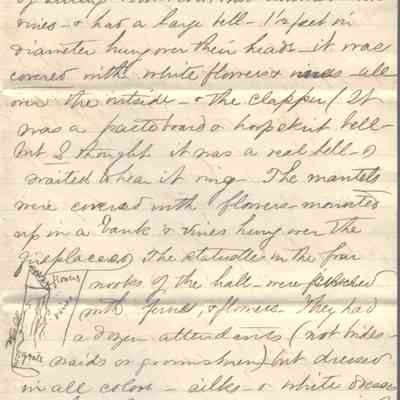 vines - & had a large bell - 1½ feet in
diameter hung over their heads - it was
covered with white flowers & vines all
over the outside - & the clapper (It
was a pasteboard & hoopskirt bell -
but I thought it was a real bell - &
waited to hear it ring. The mantels
were covered with flowers - mounted
up in a bank & vines hung over the
fireplaces) The statuettes in the four
nooks of the hall - were
flowers
vines
grate
with ferns, & flowers. They had
a dozen attendants (not brides-
maids or groomsmen) but dressed
in all colors - silks - & white dresses